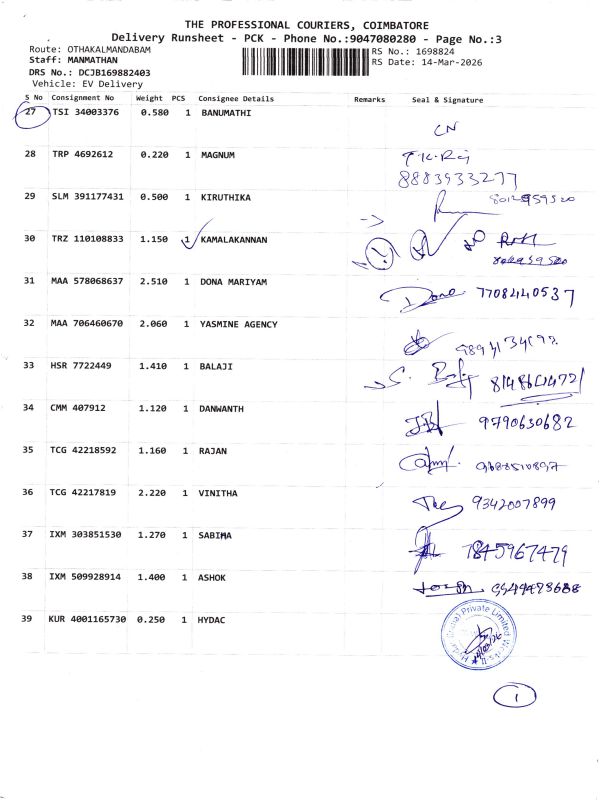 THE PROFESSIONAL COURIERS, COIMBATORE
Delivery Runsheet - PCK - Phone No.:9047080280 - Page No.:3
Route: OTHAKALMANDABAM
RS No.: 1698824
Staff: MANMATHAN
RS Date: 14-Mar-2026
DRS No.: DCJB169882403
Vehicle: EV Delivery
S No Consignment No Weight PCS Consignee Details Remarks Seal & Signature
27 TSI 34003376 0.580 1 BANUMATHI
CN
28 TRP 4692612 0.220 1 MAGNUM
8883933277
29 SLM 391177431 0.500 1 KIRUTHIKA
30 TRZ 110108833 1.150 1 KAMALAKANNAN
31 MAA 578068637 2.510 1 DONA MARIYAM
Dona 7708440537
32 MAA 706460670 2.060 1 YASMINE AGENCY
33 HSR 7722449 1.410 1 BALAJI
34 CMM 407912 1.120 1 DANWANTH
9790630682
35 TCG 42218592 1.160 1 RAJAN
36 TCG 42217819 2.220 1 VINITHA
9342007899
37 IXM 303851530 1.270 1 SABIMA
7845967479
38 IXM 509928914 1.400 1 ASHOK
39 KUR 4001165730 0.250 1 HYDAC
1